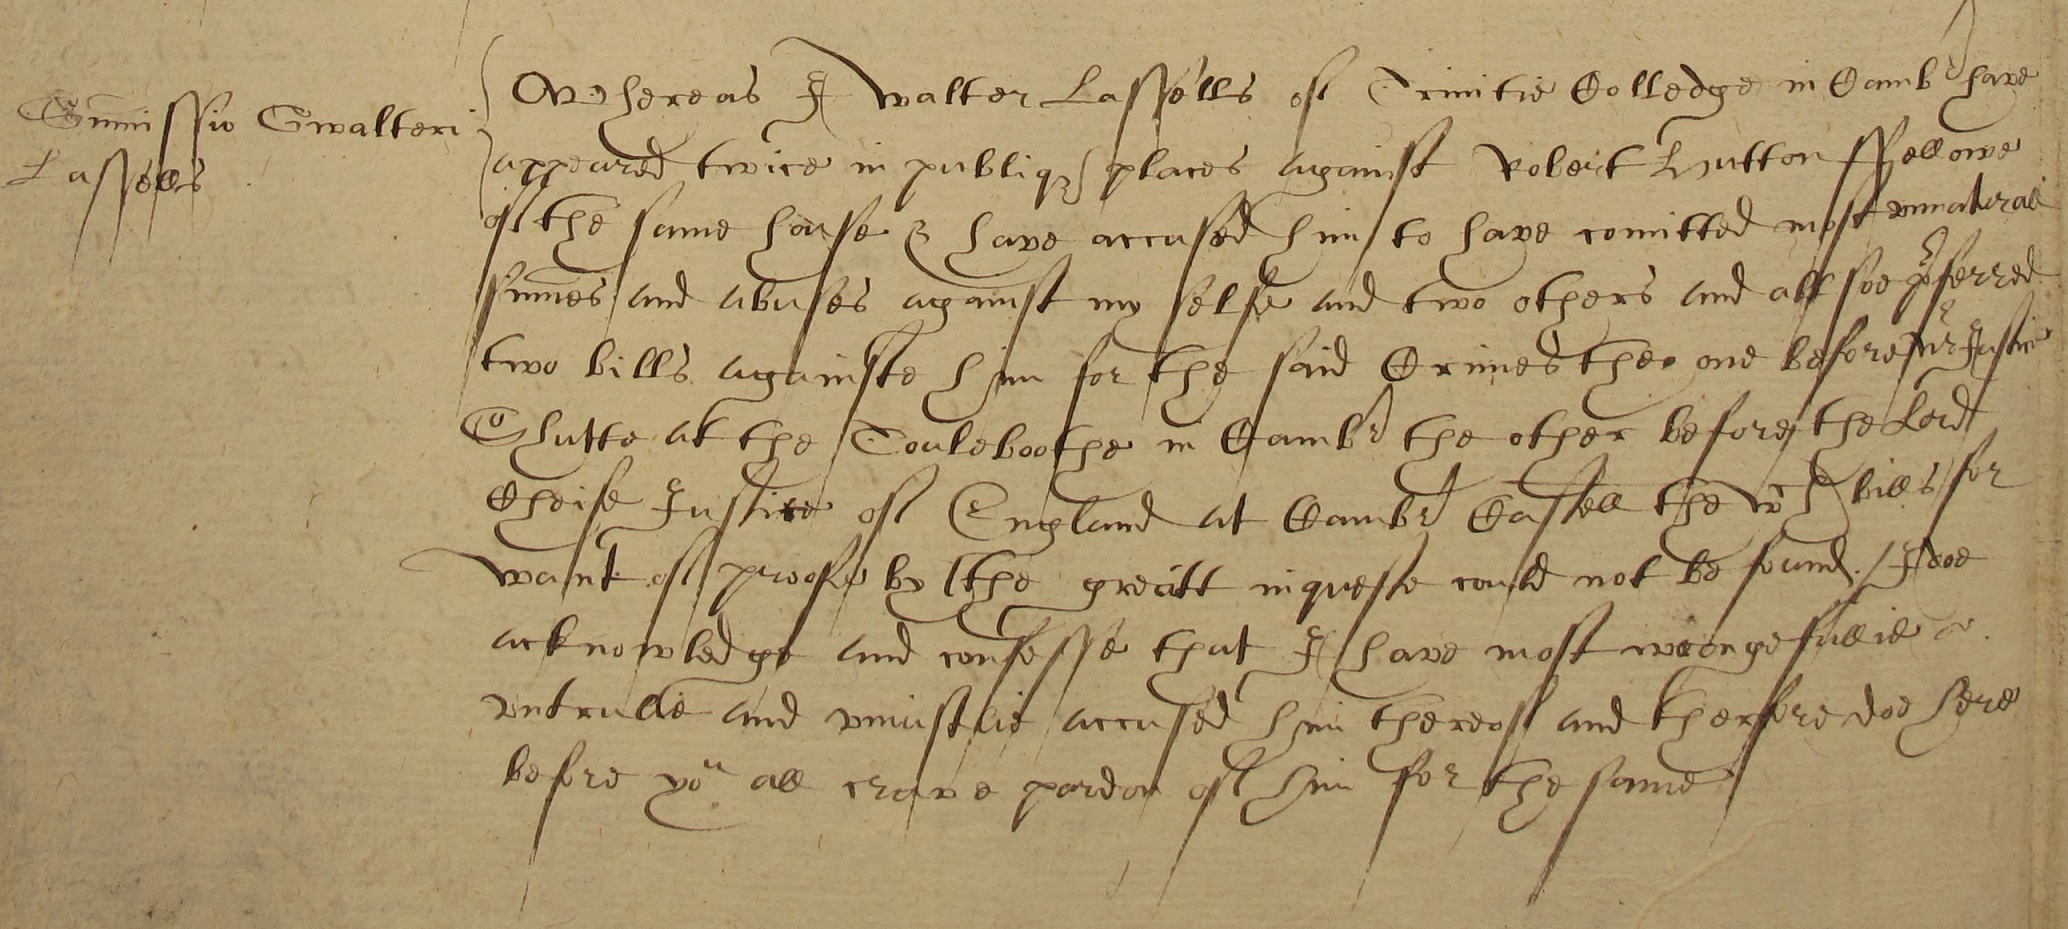 Summissio Gwalteri
Lassells
Whereas I Walter Lassells of Trinitie Colledge in Cambr have
appeared twice in publique places against Robert Hutton ffellowe
of the same house & have accused him to have comitted most unnaturall
sinnes and abuses against my selfe and two others and allsoe pferred
two bills againste him for the said Crimes thee one before Mr Justice
Chutte at the Touleboothe in Cambr the other before the Lord
Cheife Justice of England at Cambr Castell the wch bills for
want of proofe by the greatt inqueste could not be found. / I doe
acknowledge and confesse that I have most wrongefullie &
untrulie and uniustlie accused him thereof and therfore doe here
before you all crave pardon of him for the same